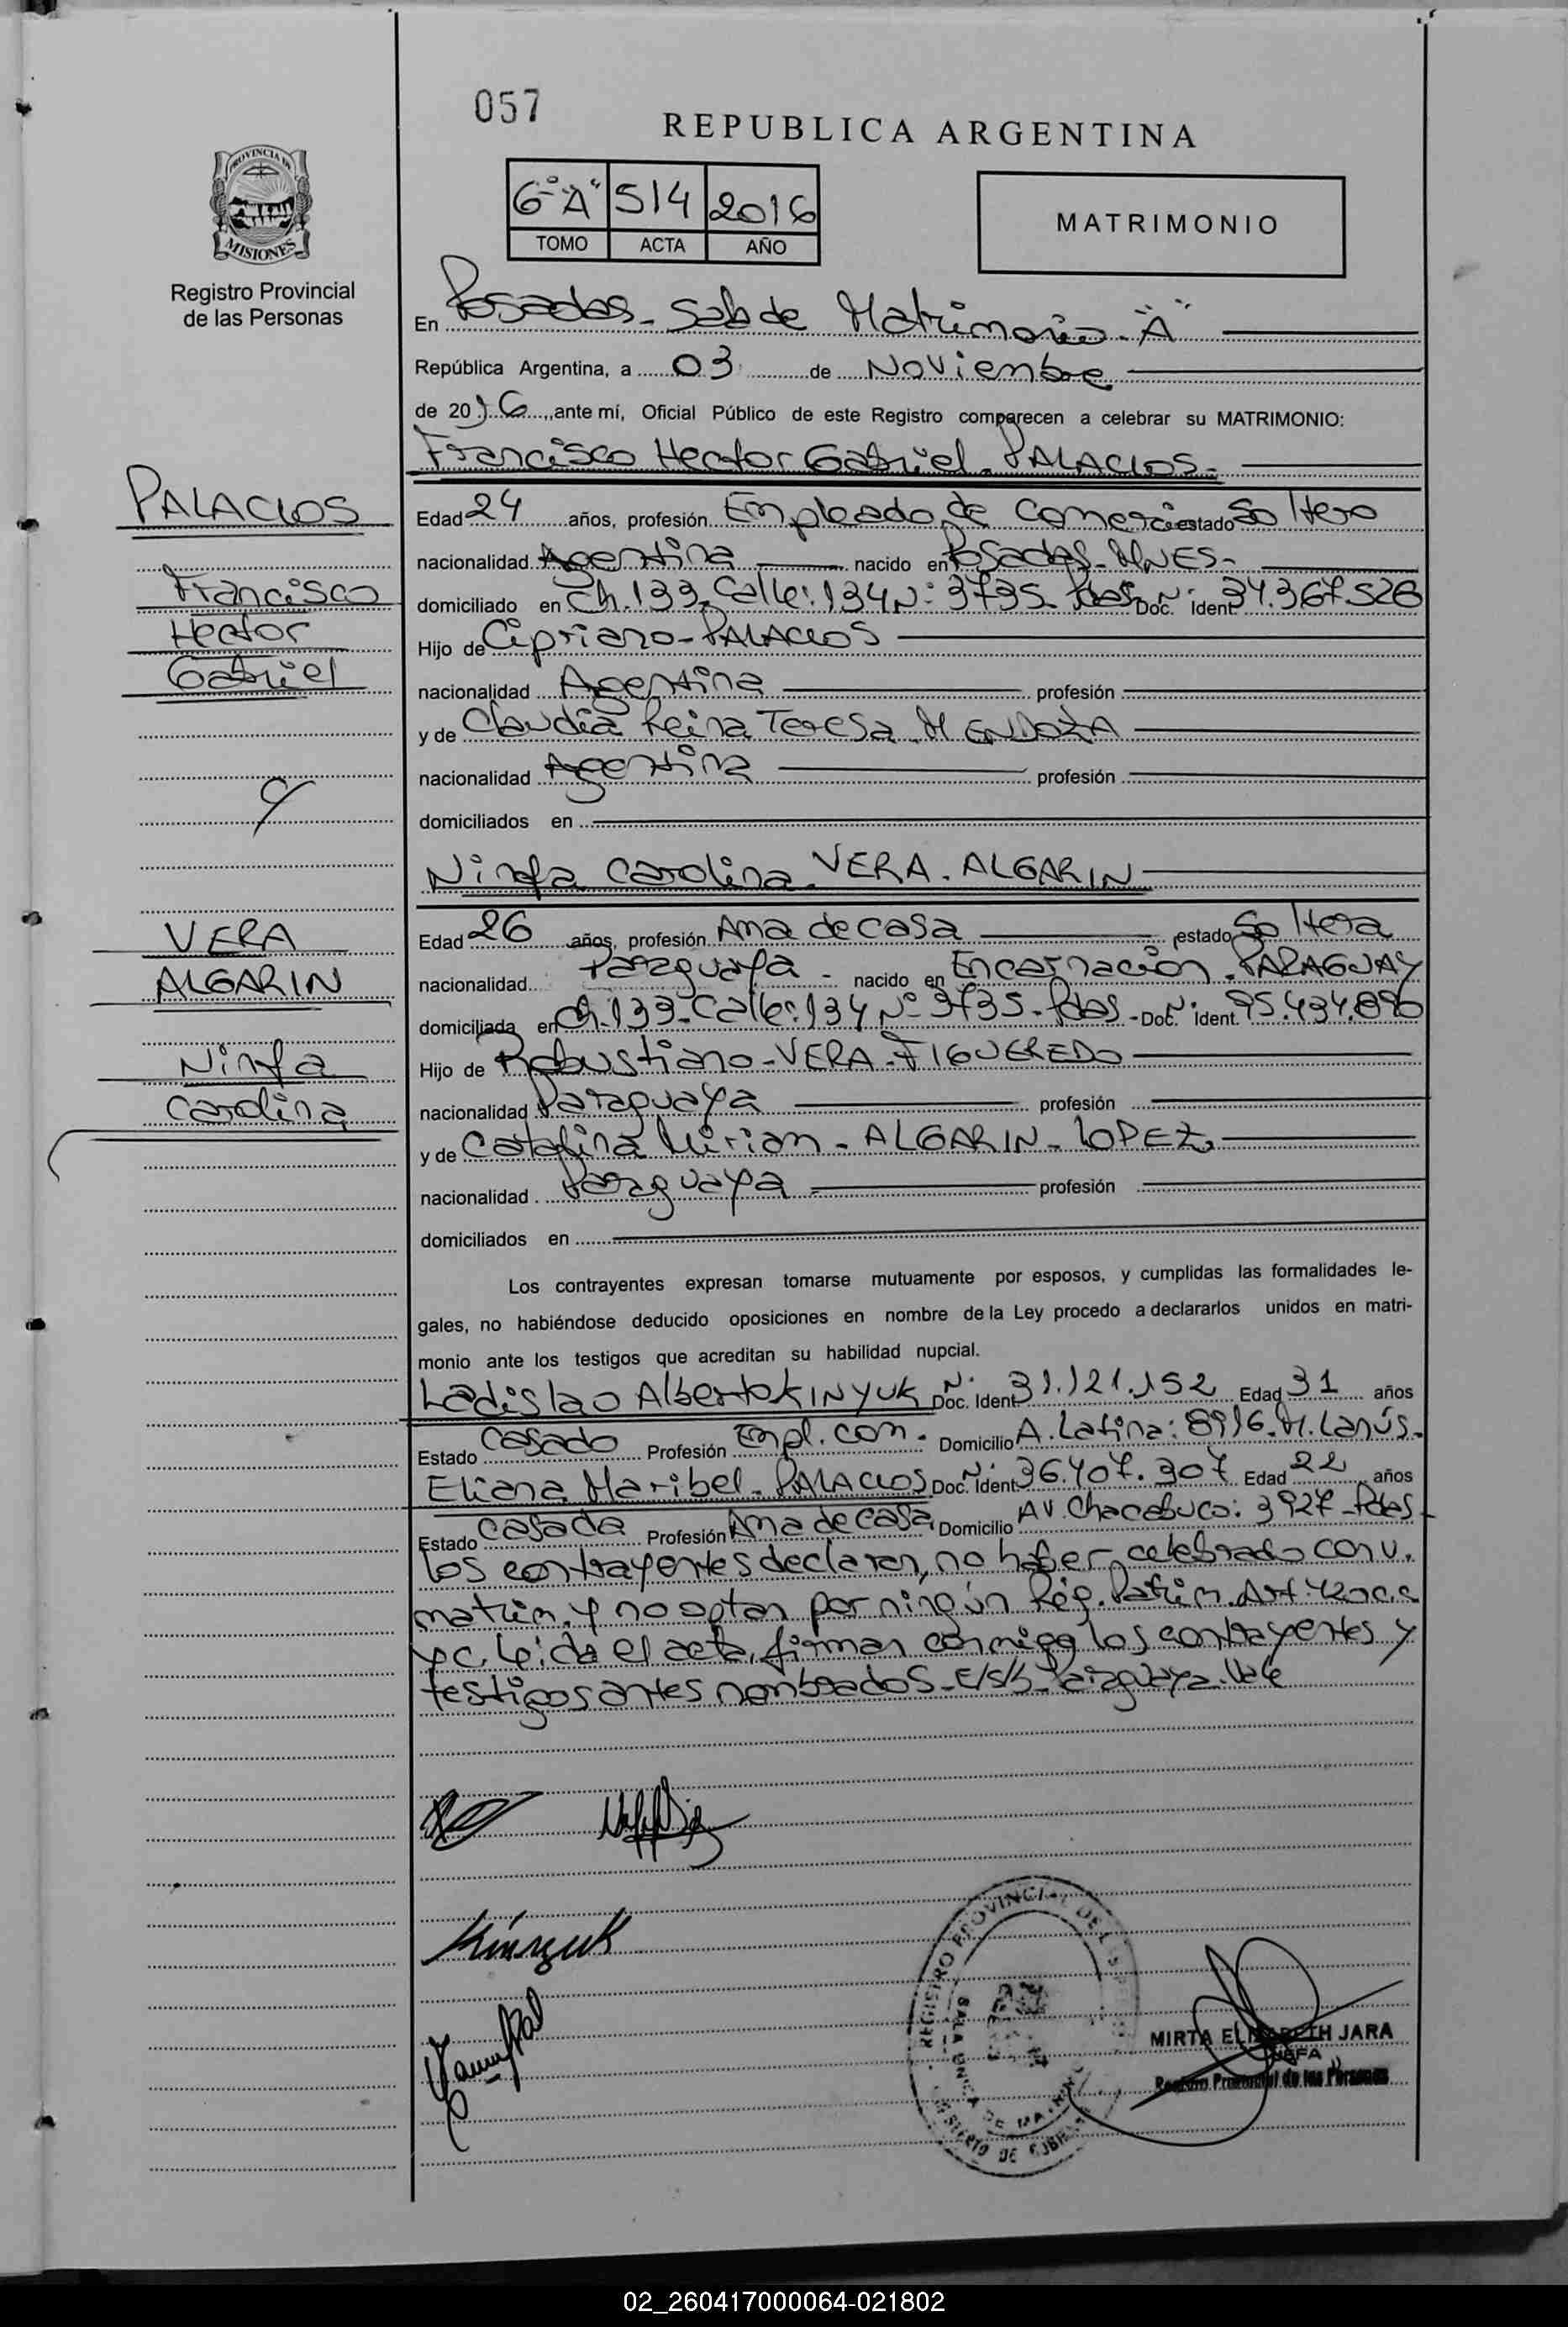 057
REPUBLICA ARGENTINA
PROVINCIA DE
MISIONES
Registro Provincial
de las Personas
6º "A" 514 2016
TOMO ACTA AÑO
MATRIMONIO
En Posadas - Sala de Matrimonio - "A"
República Argentina, a 03 de Noviembre
de 2016, ante mí, Oficial Público de este Registro comparecen a celebrar su MATRIMONIO:
Francisco Hector Gabriel - PALACIOS -
PALACIOS
Edad 24 años, profesión Empleado de Comercio estado Soltero
nacionalidad Argentina nacido en Posadas - MNES -
Francisco
domiciliado en Ch. 133 - Calle: 134 Nº 3735 - Pdas - Doc. Nº Ident. 34.367.526
Hector
Hijo de Cipriano - PALACIOS
Gabriel
nacionalidad Argentina profesión
y de Claudia Reina Teresa - MENDOZA
nacionalidad Argentina profesión
y
domiciliados en
Ninfa Carolina - VERA - ALGARIN
VERA
Edad 26 años, profesión Ama de casa estado Soltera
ALGARIN
nacionalidad Paraguaya - nacido en Encarnación - PARAGUAY
domiciliada en Ch. 133 - Calle: 134 Nº 3735 - Pdas - Doc. Nº Ident. 95.434.890
Ninfa
Hijo de Robustiano - VERA - FIGUEREDO
Carolina
nacionalidad Paraguaya profesión
y de Catalina Mirian - ALGARIN - LOPEZ
nacionalidad Paraguaya profesión
domiciliados en
Los contrayentes expresan tomarse mutuamente por esposos, y cumplidas las formalidades le-
gales, no habiéndose deducido oposiciones en nombre de la Ley procedo a declararlos unidos en matri-
monio ante los testigos que acreditan su habilidad nupcial.
Ladislao Alberto KINYUK Doc. Nº Ident. 31.121.152 Edad 31 años
Estado Casado Profesión Empl. com. Domicilio A. Latina: 8916 - M. Lanús -
Eliana Maribel - PALACIOS Doc. Nº Ident. 36.407.307 Edad 22 años
Estado Casada Profesión Ama de casa Domicilio Av. Chacabuco: 3927 - Pdas -
los contrayentes declaran, no haber celebrado conv.
matrim. y no optan por ningún Rég. Patrim. Art. 420 c.c
y c. Leída el acta, firman conmigo los contrayentes y
testigos antes nombrados - E/s/b - Paraguaya. Vale
Kinyuk
REGISTRO PROVINCIAL DE LAS
SALA UNICA DE MATRIMO
MIRTA ELIZABETH JARA
JEFA
Registro Provincial de las Personas
02_260417000064-021802